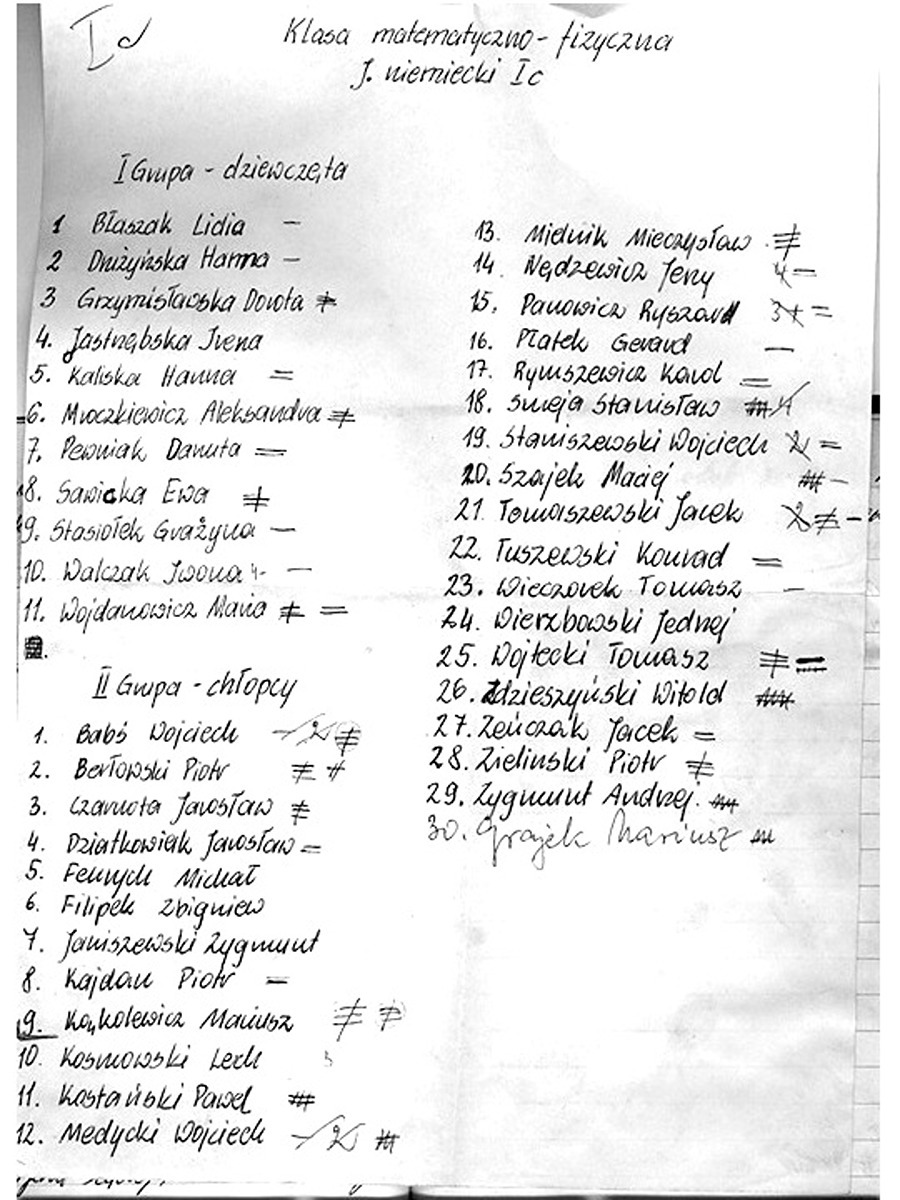 Id
Klasa matematyczno - fizyczna
J. niemiecki Ic
I Grupa - dziewczęta
1 Błaszak Lidia -
2 Dniżyńska Hanna -
3 Grzymisławska Dorota
4. Jastrzębska Irena
5. Kaliska Hanna =
6. Mroczkiewicz Aleksandra
7. Pewniak Danuta =
8. Sawicka Ewa
9. Stasiołek Grażyna -
10. Walczak Iwona 4- -
11. Wojdanowicz Maria =
II Grupa - chłopcy
1. Babś Wojciech 2
2. Berłowski Piotr
3. Czarnota Jarosław
4. Działkowiak Jarosław =
5. Fenrych Michał
6. Filipek Zbigniew
7. Janiszewski Zygmunt
8. Kajdan Piotr =
9. Kąkolewicz Mariusz
10. Kosmowski Lech 5
11. Kostański Paweł
12. Medycki Wojciech - 2
13. Mielnik Mieczysław
14. Nędzewicz Jerzy 4 =
15. Panowicz Ryszard 3 =
16. Płatek Gerard -
17. Rymszewicz Karol =
18. Smeja Stanisław 4
19. Staniszewski Wojciech 2 =
20. Szajek Maciej -
21. Tomaszewski Jacek 2 -
22. Tuszewski Konrad =
23. Wieczorek Tomasz -
24. Wierzbowski Jędrzej
25. Wojtecki Tomasz =
26. Zdzieszyński Witold
27. Zeńczak Jacek =
28. Zieliński Piotr
29. Zygmunt Andrzej.
30. Grajek Mariusz